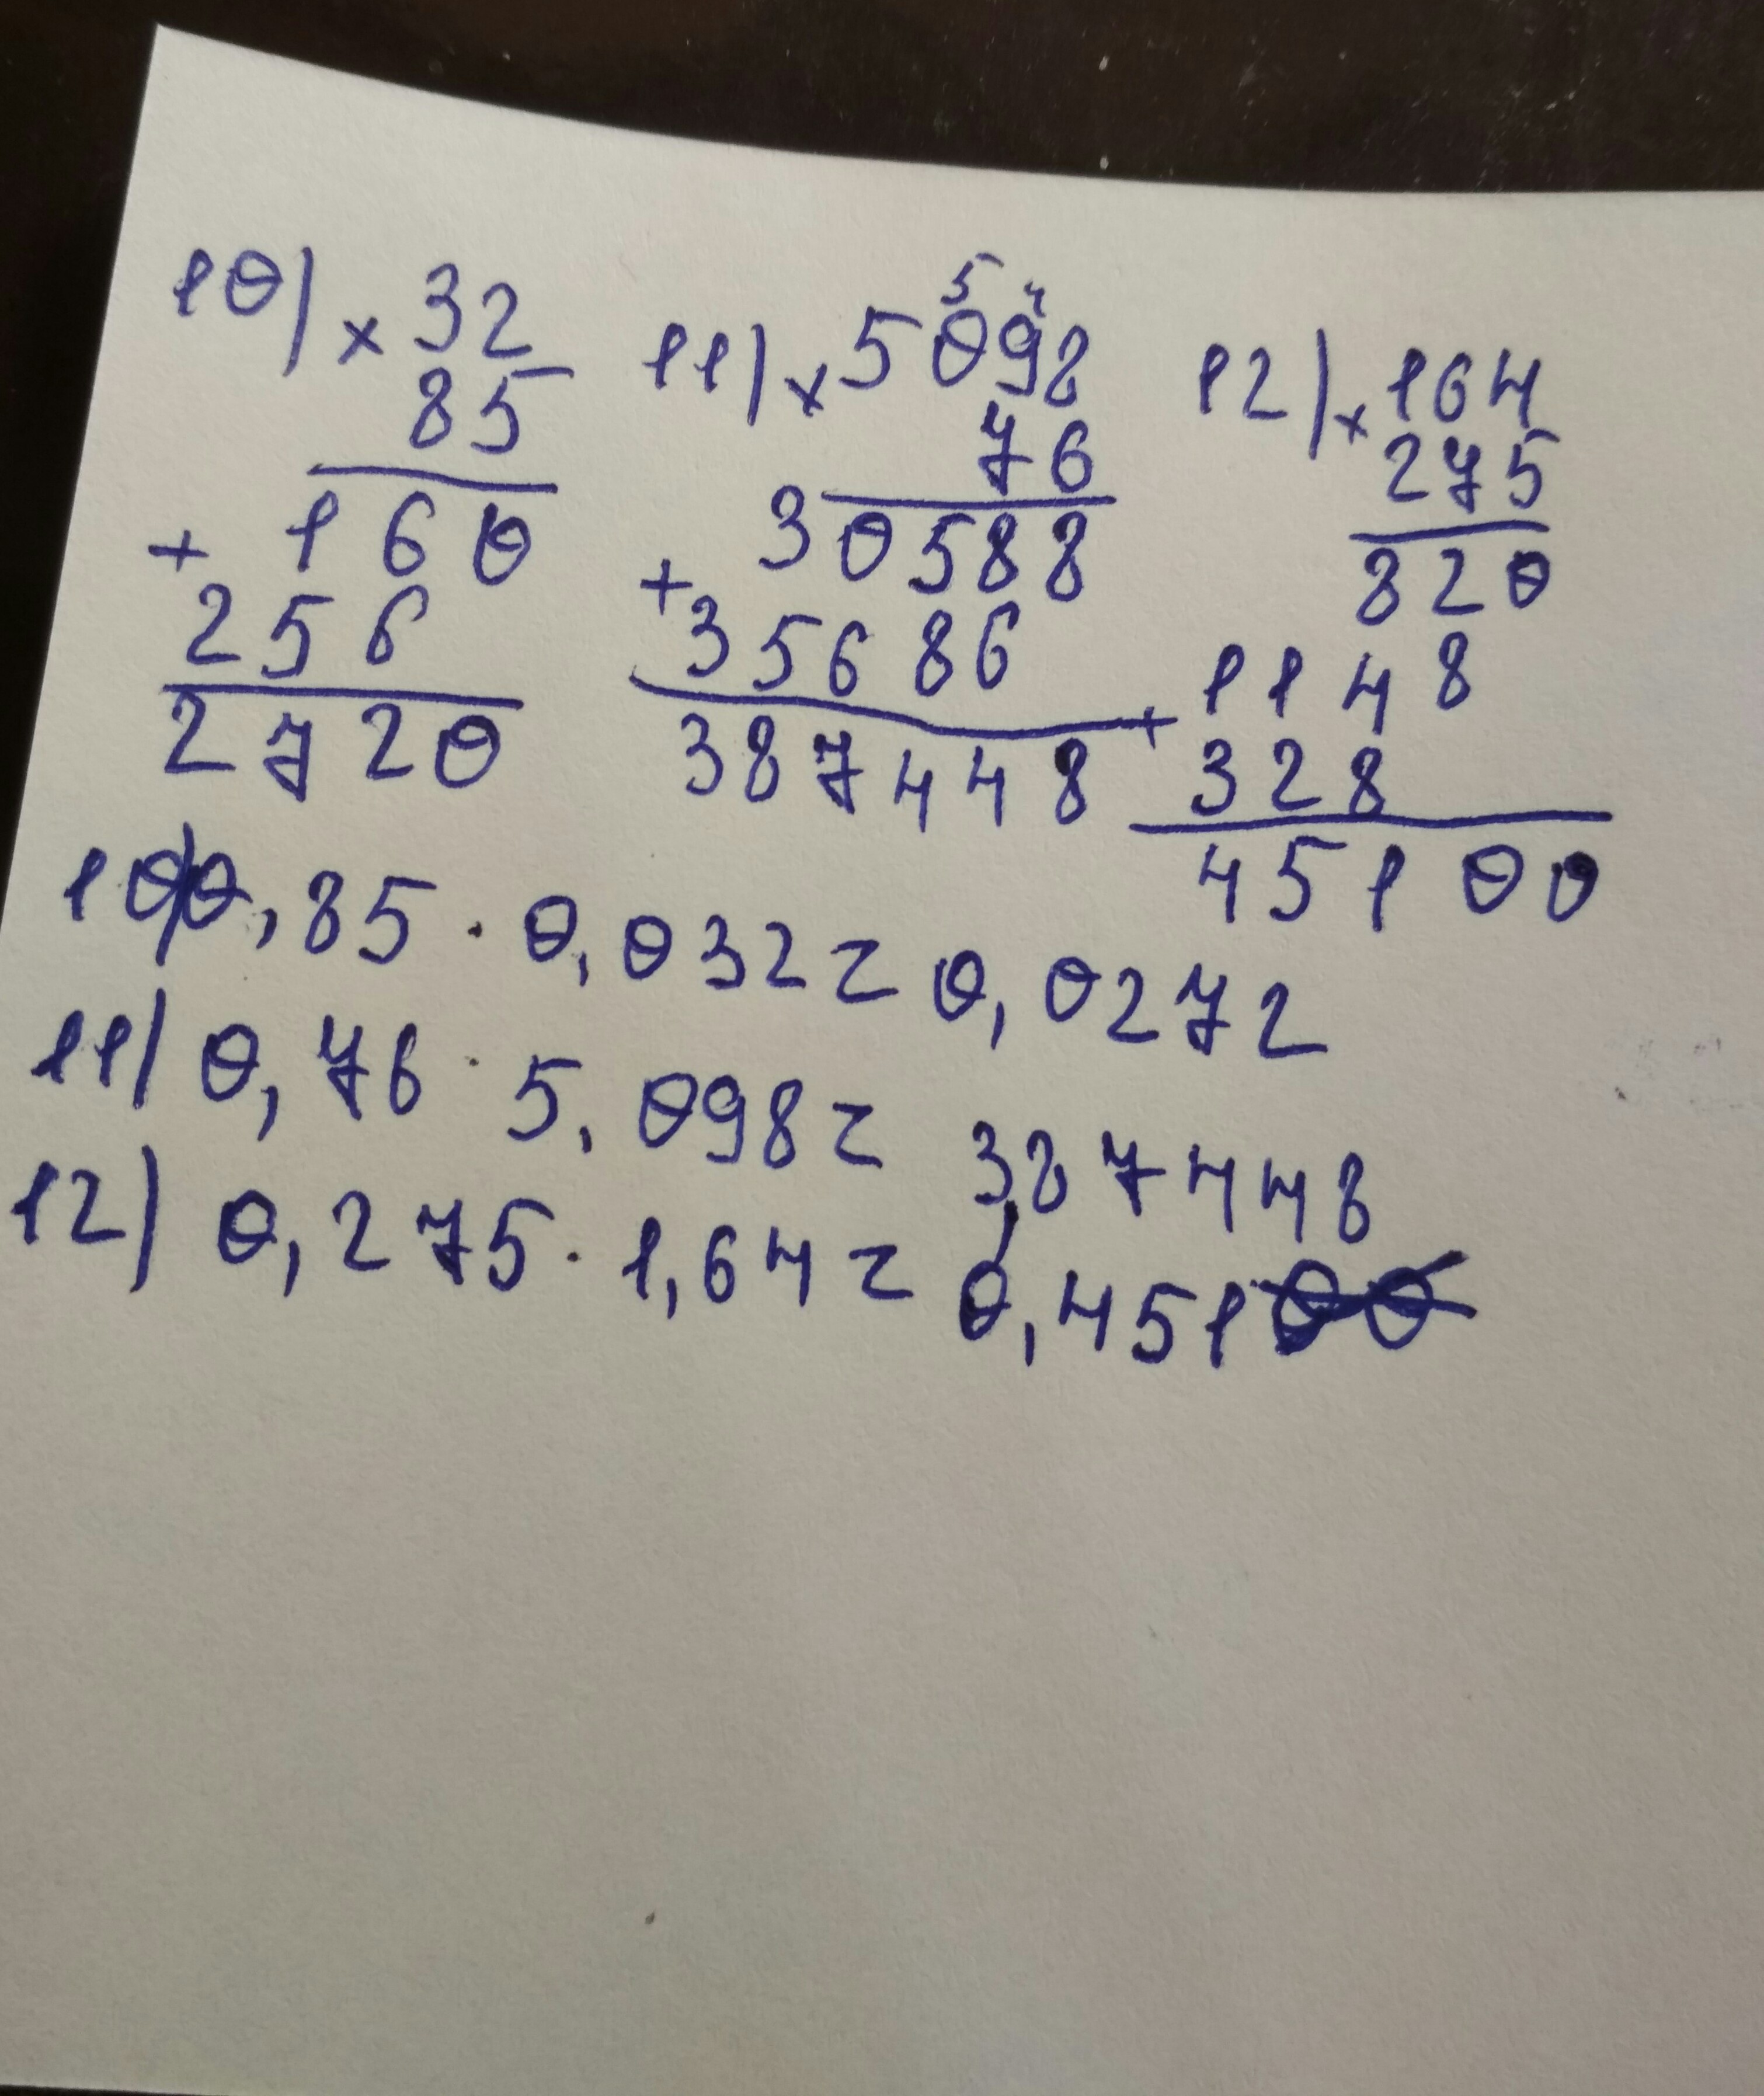 10) × 32
85
160
+
256
2720
11) × 5098
5 4
76
30588
+
35686
387448
12) × 164
275
820
1148
+
328
45100
10) 0,85 · 0,032 = 0,0272
11) 0,76 · 5,098 = 3,87448
12) 0,275 · 1,64 = 0,45100